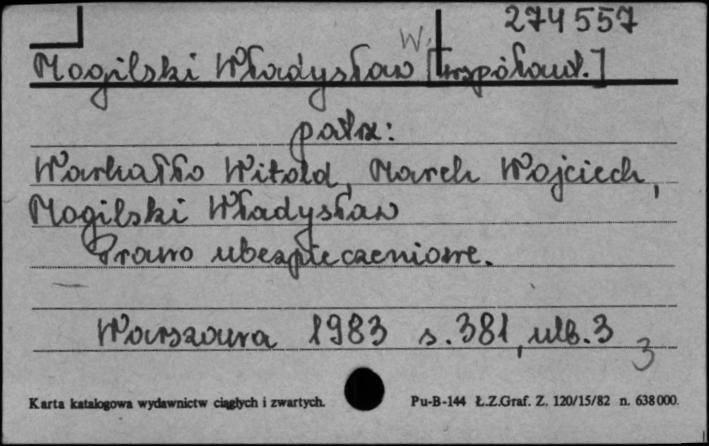 274557
W.
Mogilski Władysław [współaut.]
patrz:
Warkałło Witold, Marek Wojciech,
Mogilski Władysław
Prawo ubezpieczeniowe.
Warszawa 1983 s.381, ulb.3
3
Karta katalogowa wydawnictw ciągłych i zwartych. Pu-B-144 Ł.Z.Graf. Z. 120/15/82 n. 638000.